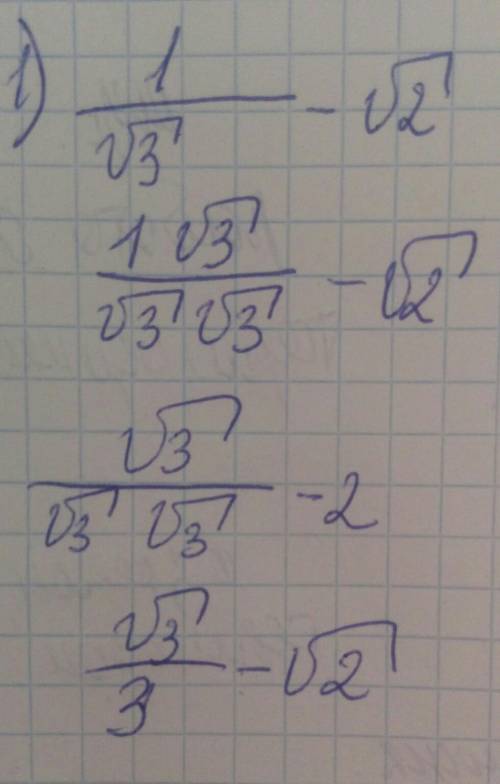 1) 1/√3 - √2
1 √3/√3 √3 - √2
√3/√3 √3 - 2
√3/3 - √2